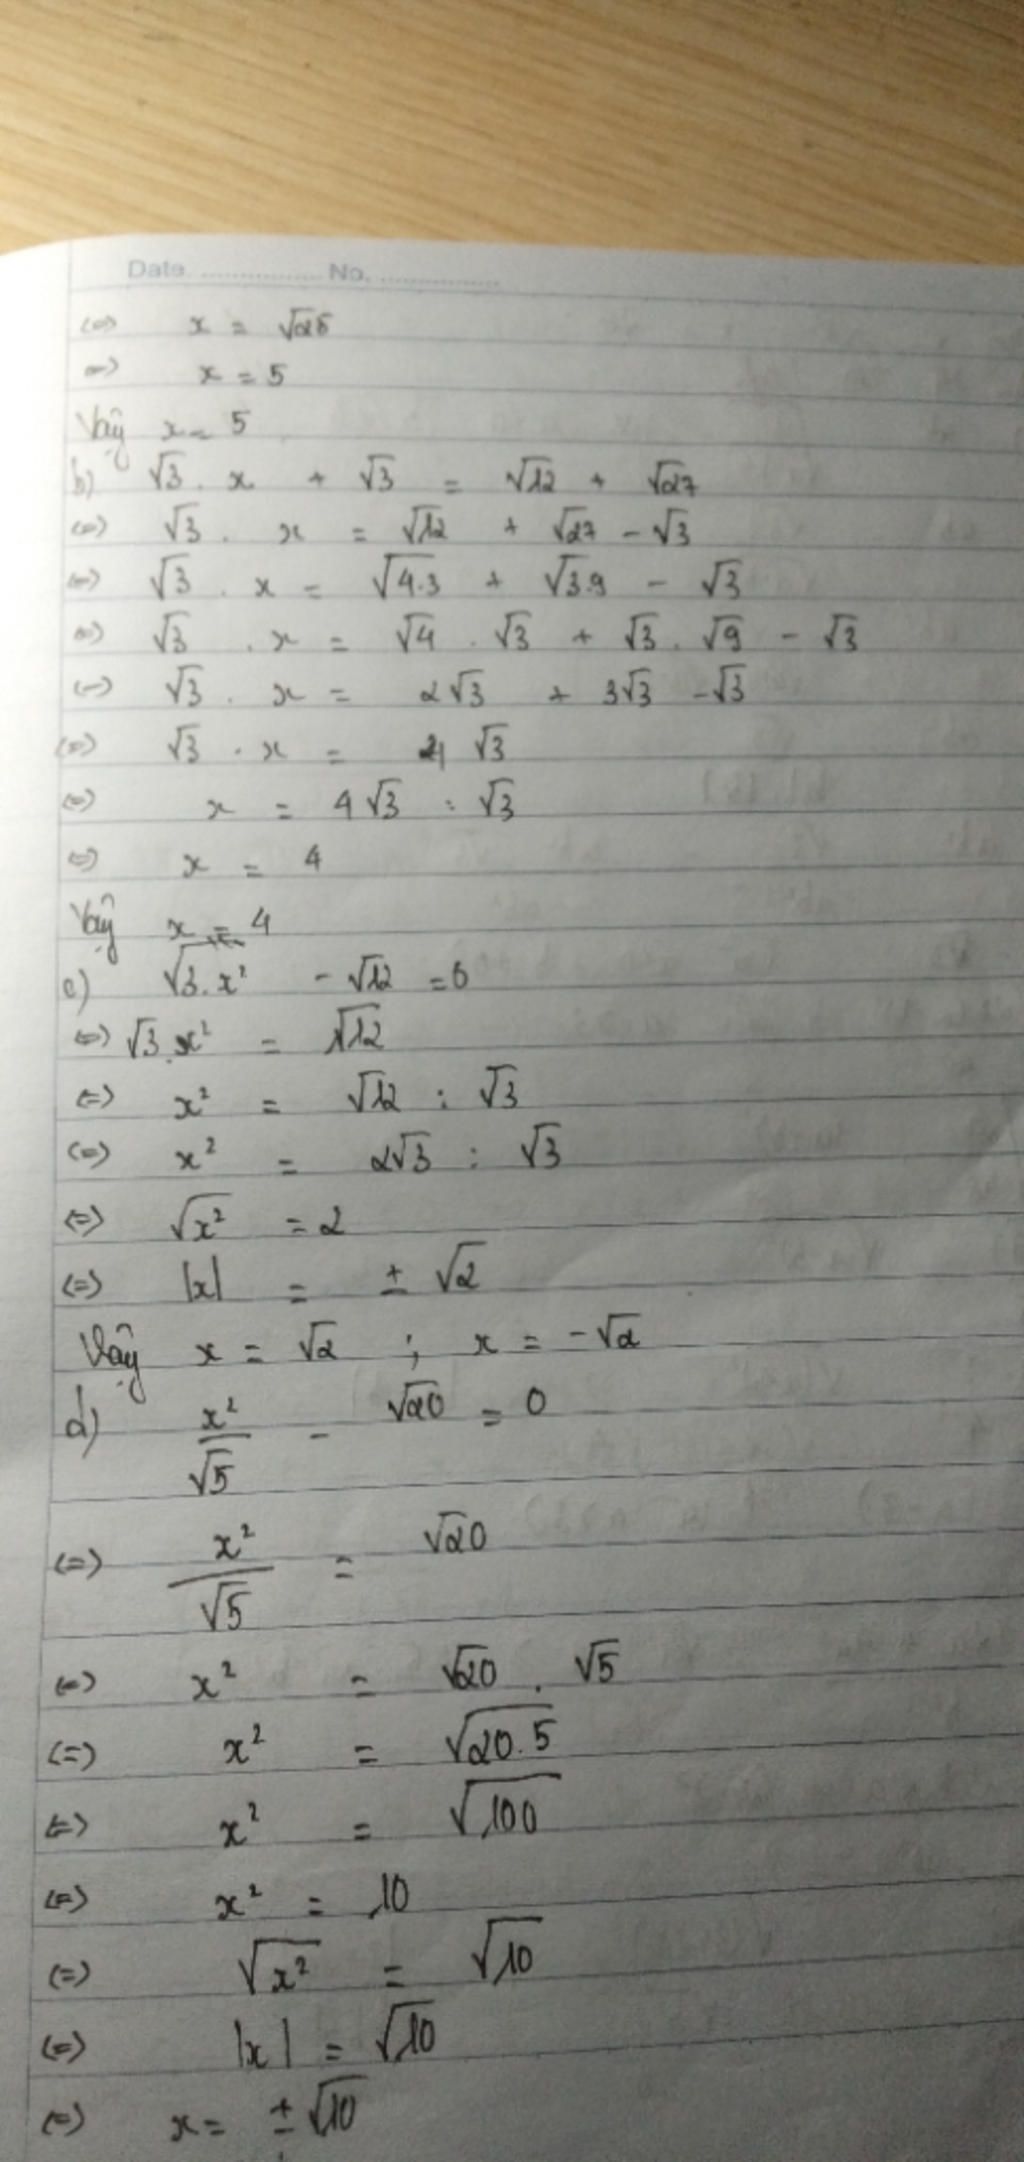 Date ............... No. ...............
<=> x = √25
<=> x = 5
Vậy x = 5
b) √3 . x + √3 = √12 + √27
<=> √3 . x = √12 + √27 - √3
<=> √3 . x = √4.3 + √3.9 - √3
<=> √3 . x = √4 . √3 + √3 . √9 - √3
<=> √3 . x = 2√3 + 3√3 - √3
<=> √3 . x = 4 √3
<=> x = 4√3 : √3
<=> x = 4
Vậy x = 4
c) √3.x² - √12 = 0
<=> √3.x² = √12
<=> x² = √12 : √3
<=> x² = 2√3 : √3
<=> √x² = 2
<=> |x| = ± √2
Vậy x = √2 ; x = -√2
d) x²/√5 - √20 = 0
<=> x²/√5 = √20
<=> x² = √20 . √5
<=> x² = √20.5
<=> x² = √100
<=> x² = 10
<=> √x² = √10
<=> |x| = √10
<=> x = ±√10